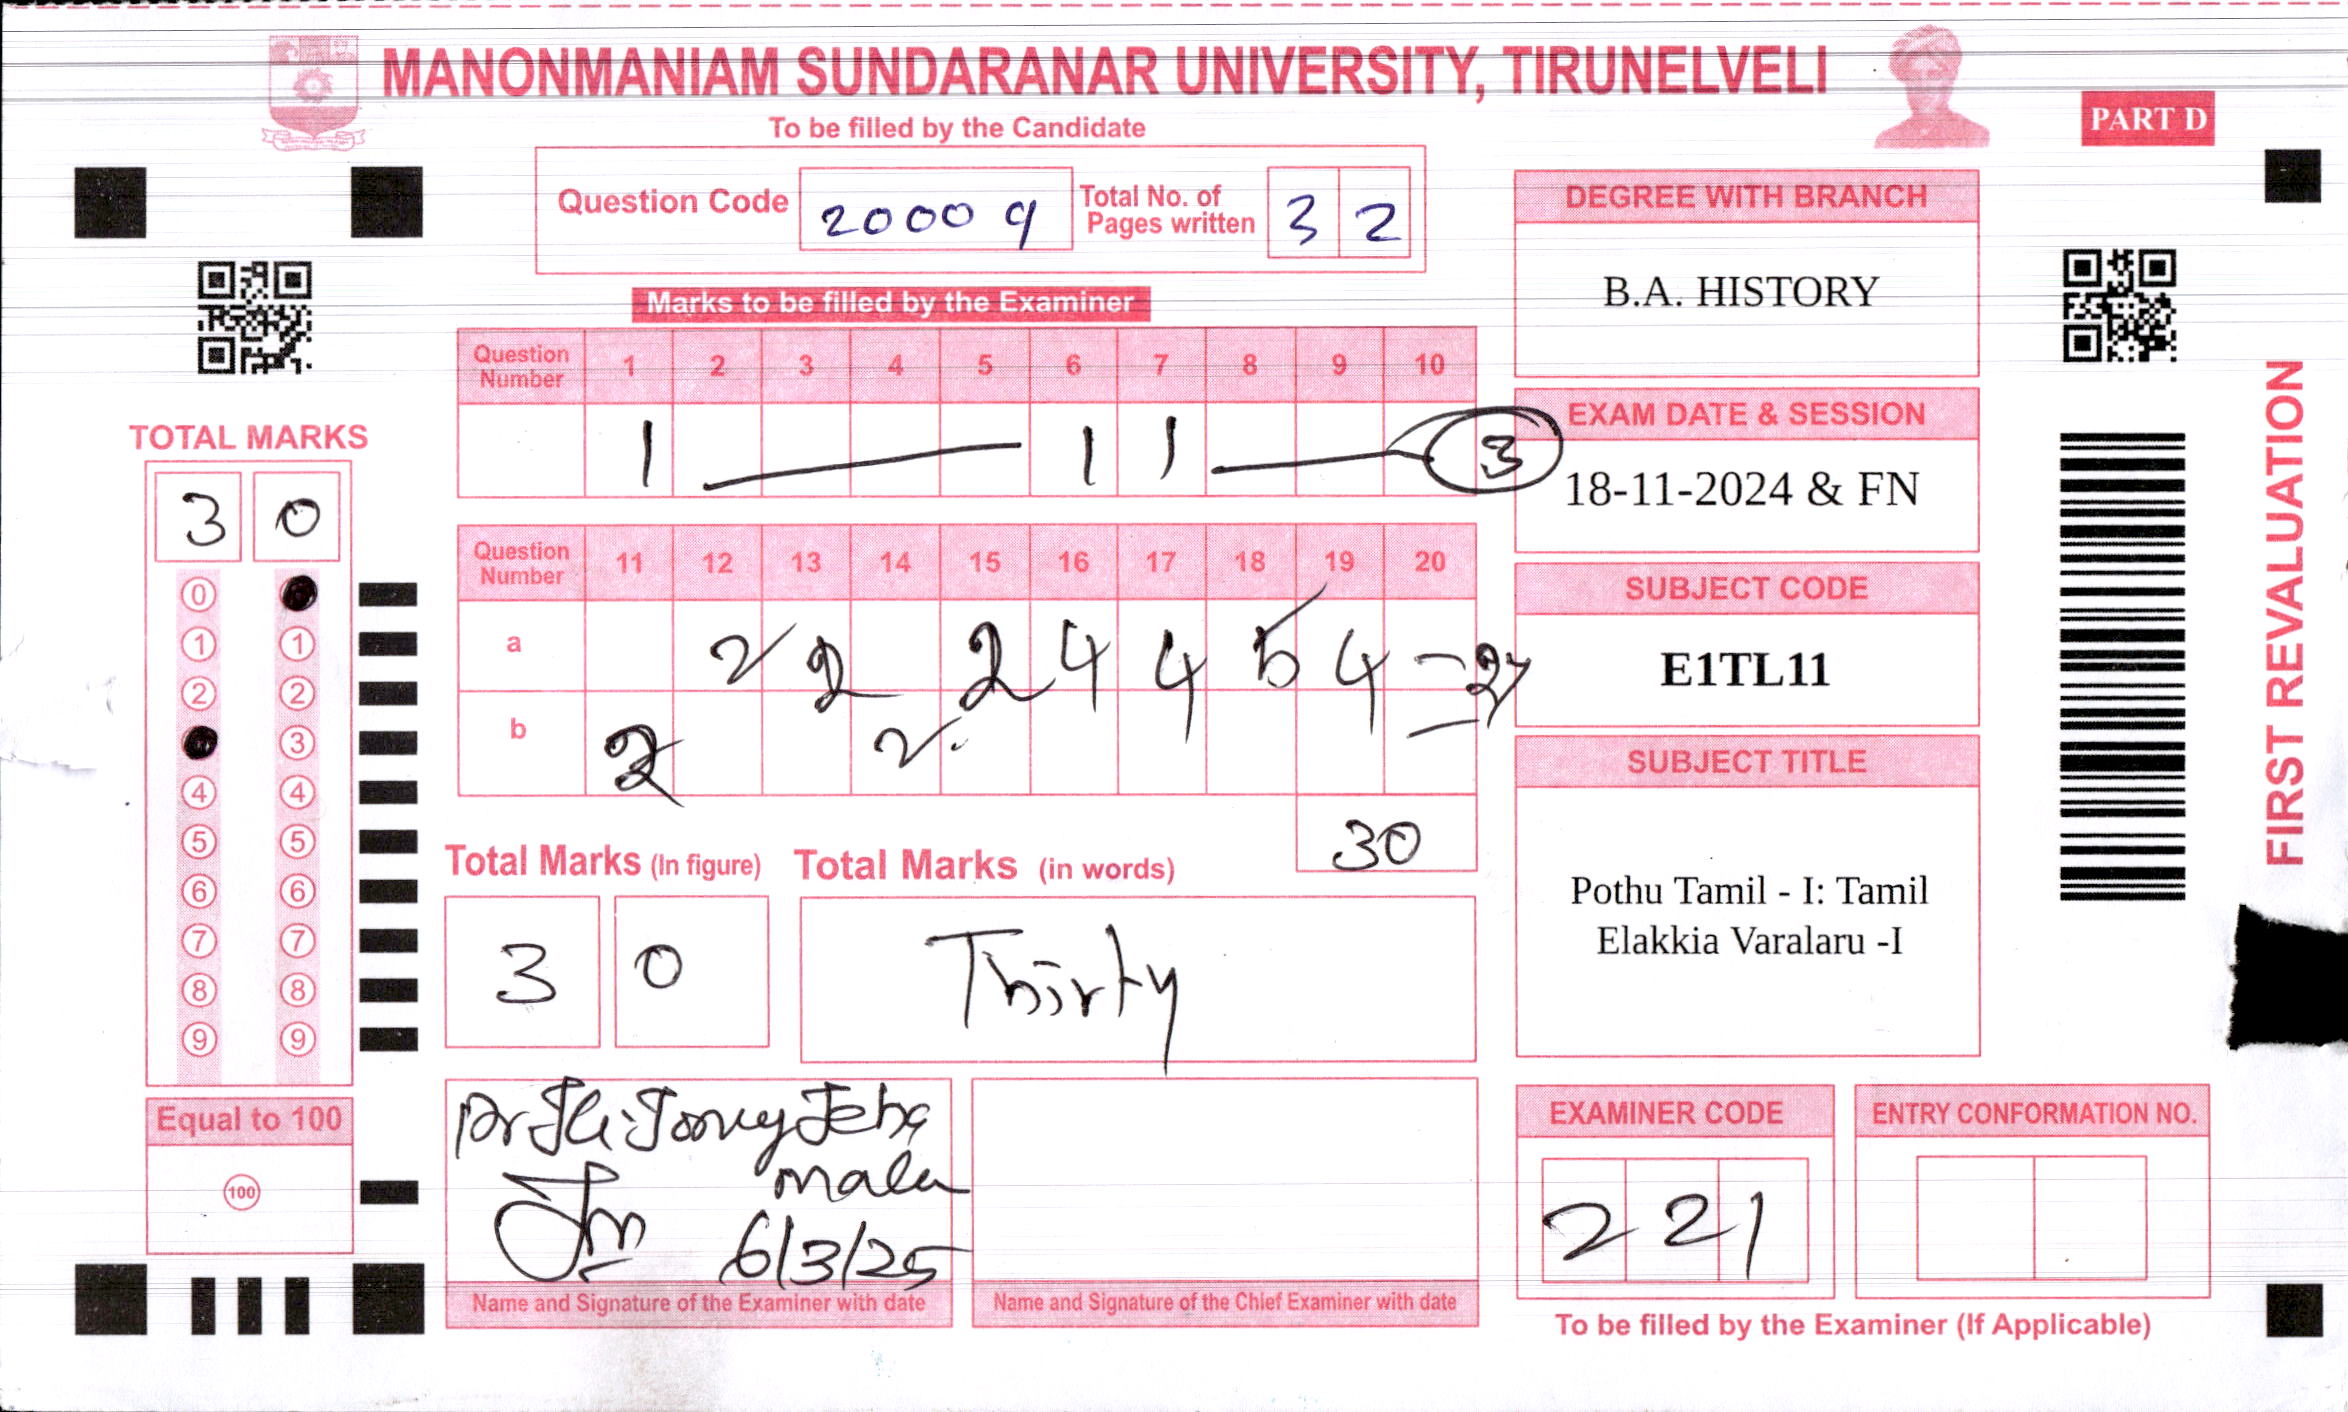 MANONMANIAM SUNDARANAR UNIVERSITY, TIRUNELVELI
To be filled by the Candidate
PART D
Question Code 20009 Total No. of Pages written 3 2
Marks to be filled by the Examiner
Question Number 1 2 3 4 5 6 7 8 9 10
1 1 1 3
Question Number 11 12 13 14 15 16 17 18 19 20
a 2 2 2 4 4 5 4 = 27
b 2 2
30
TOTAL MARKS
3 0
0
1 1
2 2
3
4 4
5 5
6 6
7 7
8 8
9 9
Equal to 100
100
Total Marks (In figure) Total Marks (in words)
3 0 Thirty
6/3/25
Name and Signature of the Examiner with date
Name and Signature of the Chief Examiner with date
DEGREE WITH BRANCH
B.A. HISTORY
EXAM DATE & SESSION
18-11-2024 & FN
SUBJECT CODE
E1TL11
SUBJECT TITLE
Pothu Tamil - I: Tamil
Elakkia Varalaru -I
EXAMINER CODE
2 2 1
ENTRY CONFORMATION NO.
To be filled by the Examiner (If Applicable)
FIRST REVALUATION